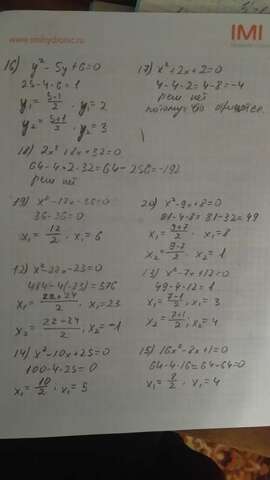 IMI
www.imihydronic.ru
16) y² - 5y + 6 = 0
25 - 4·6 = 1
y₁ = (5-1)/2 · y₁ = 2
y₂ = (5+1)/2 · y₂ = 3
17) x² + 2x + 2 = 0
4 - 4·2 = 4 - 8 = -4
реш нет
потому что отрицат.
18) 2x² + 8x + 32 = 0
64 - 4·2·32 = 64 - 256 = -192
реш нет
19) x² - 12x - 36 = 0
36 - 36 = 0
x₁ = 12/2 · x₁ = 6
20) x² - 9x + 8 = 0
81 - 4·8 = 81 - 32 = 49
x₁ = (9+7)/2 · x₁ = 8
x₂ = (9-7)/2 · x₂ = 1
12) x² - 22x - 23 = 0
484 - 4(-23) = 576
x₁ = (22+24)/2 · x₁ = 23
x₂ = (22-24)/2 · x₂ = -1
13) x² - 7x + 12 = 0
49 - 4·12 = 1
x₁ = (7-1)/2 · x₁ = 3
x₂ = (7+1)/2 · x₂ = 4
14) x² - 10x + 25 = 0
100 - 4·25 = 0
x₁ = 10/2 · x₁ = 5
15) 16x² - 8x + 1 = 0
64 - 4·16 = 64 - 64 = 0
x₁ = 8/2 · x₁ = 4